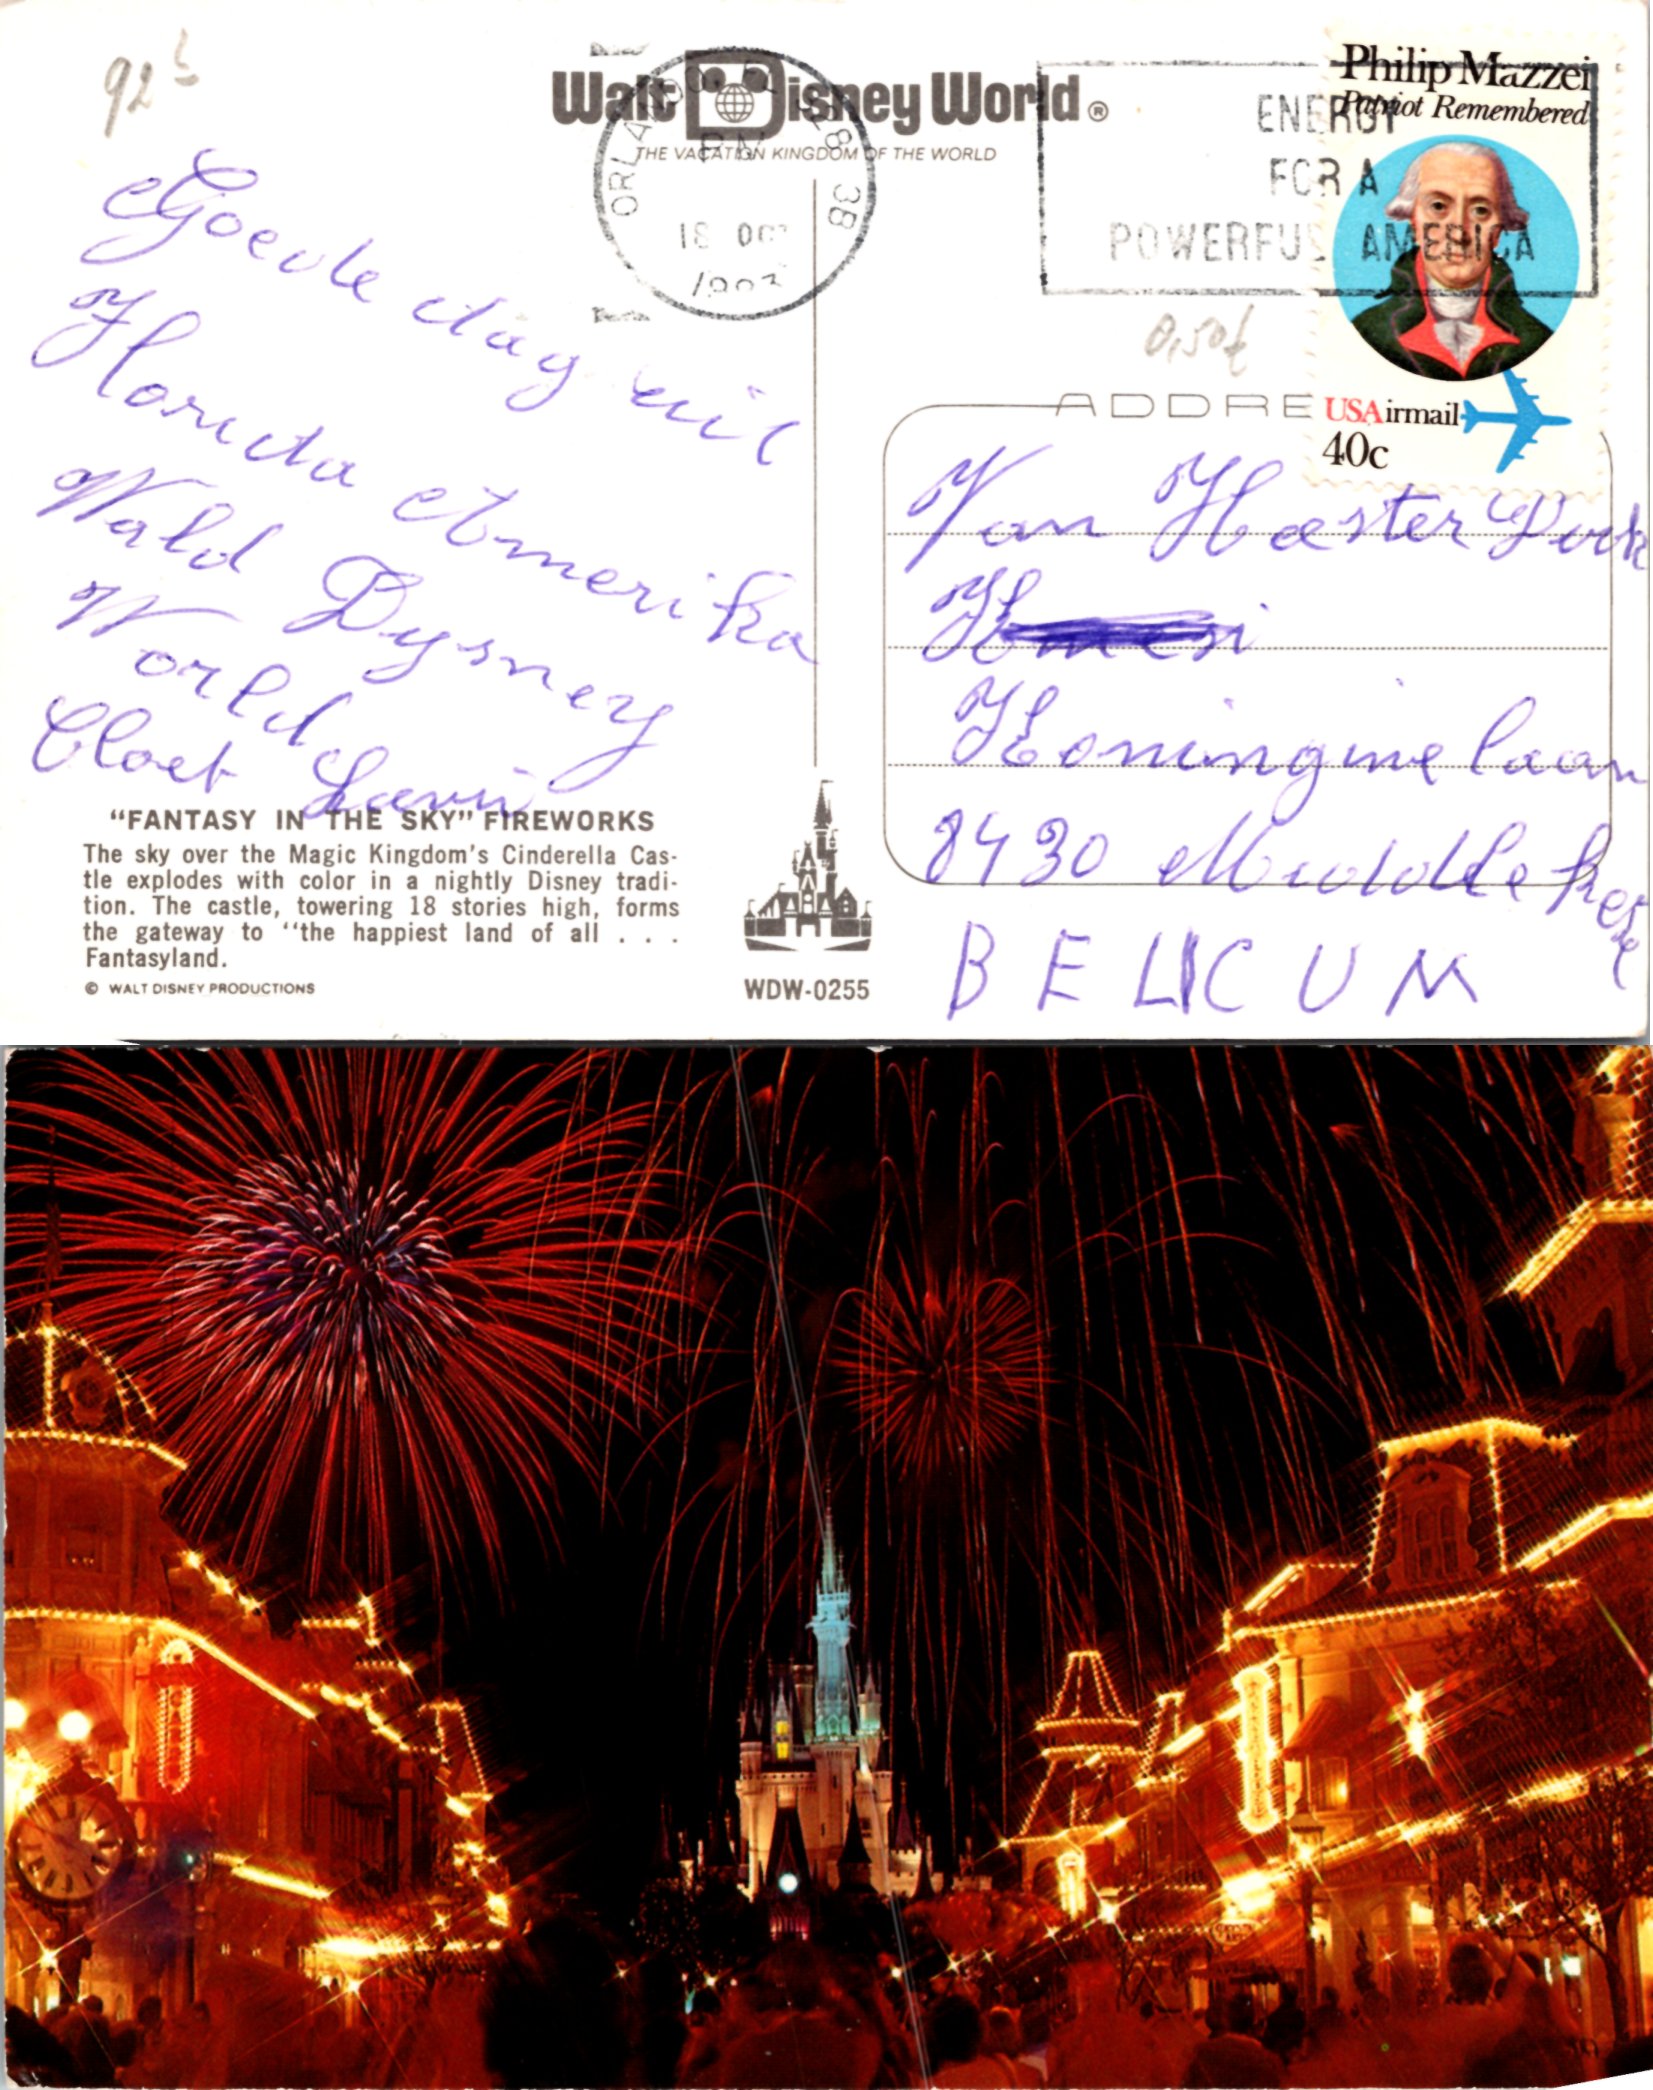 92
Walt Disney World ®
THE VACATION KINGDOM OF THE WORLD
ORLANDO, FL 328
PM
18 OC
38
ENERGY
FOR A
POWERFUL AMERICA
Philip Mazzei
Patriot Remembered
USAirmail
40c
0,50€
Goede dag uit
Florida Amerika
Wald Dysney
World
Cloet
ADDRE
Van Haester Dirk
Koningine laan
8430 Middelkerke
BELICUM
"FANTASY IN THE SKY" FIREWORKS
The sky over the Magic Kingdom's Cinderella Cas-
tle explodes with color in a nightly Disney tradi-
tion. The castle, towering 18 stories high, forms
the gateway to "the happiest land of all . . .
Fantasyland.
© WALT DISNEY PRODUCTIONS
WDW-0255